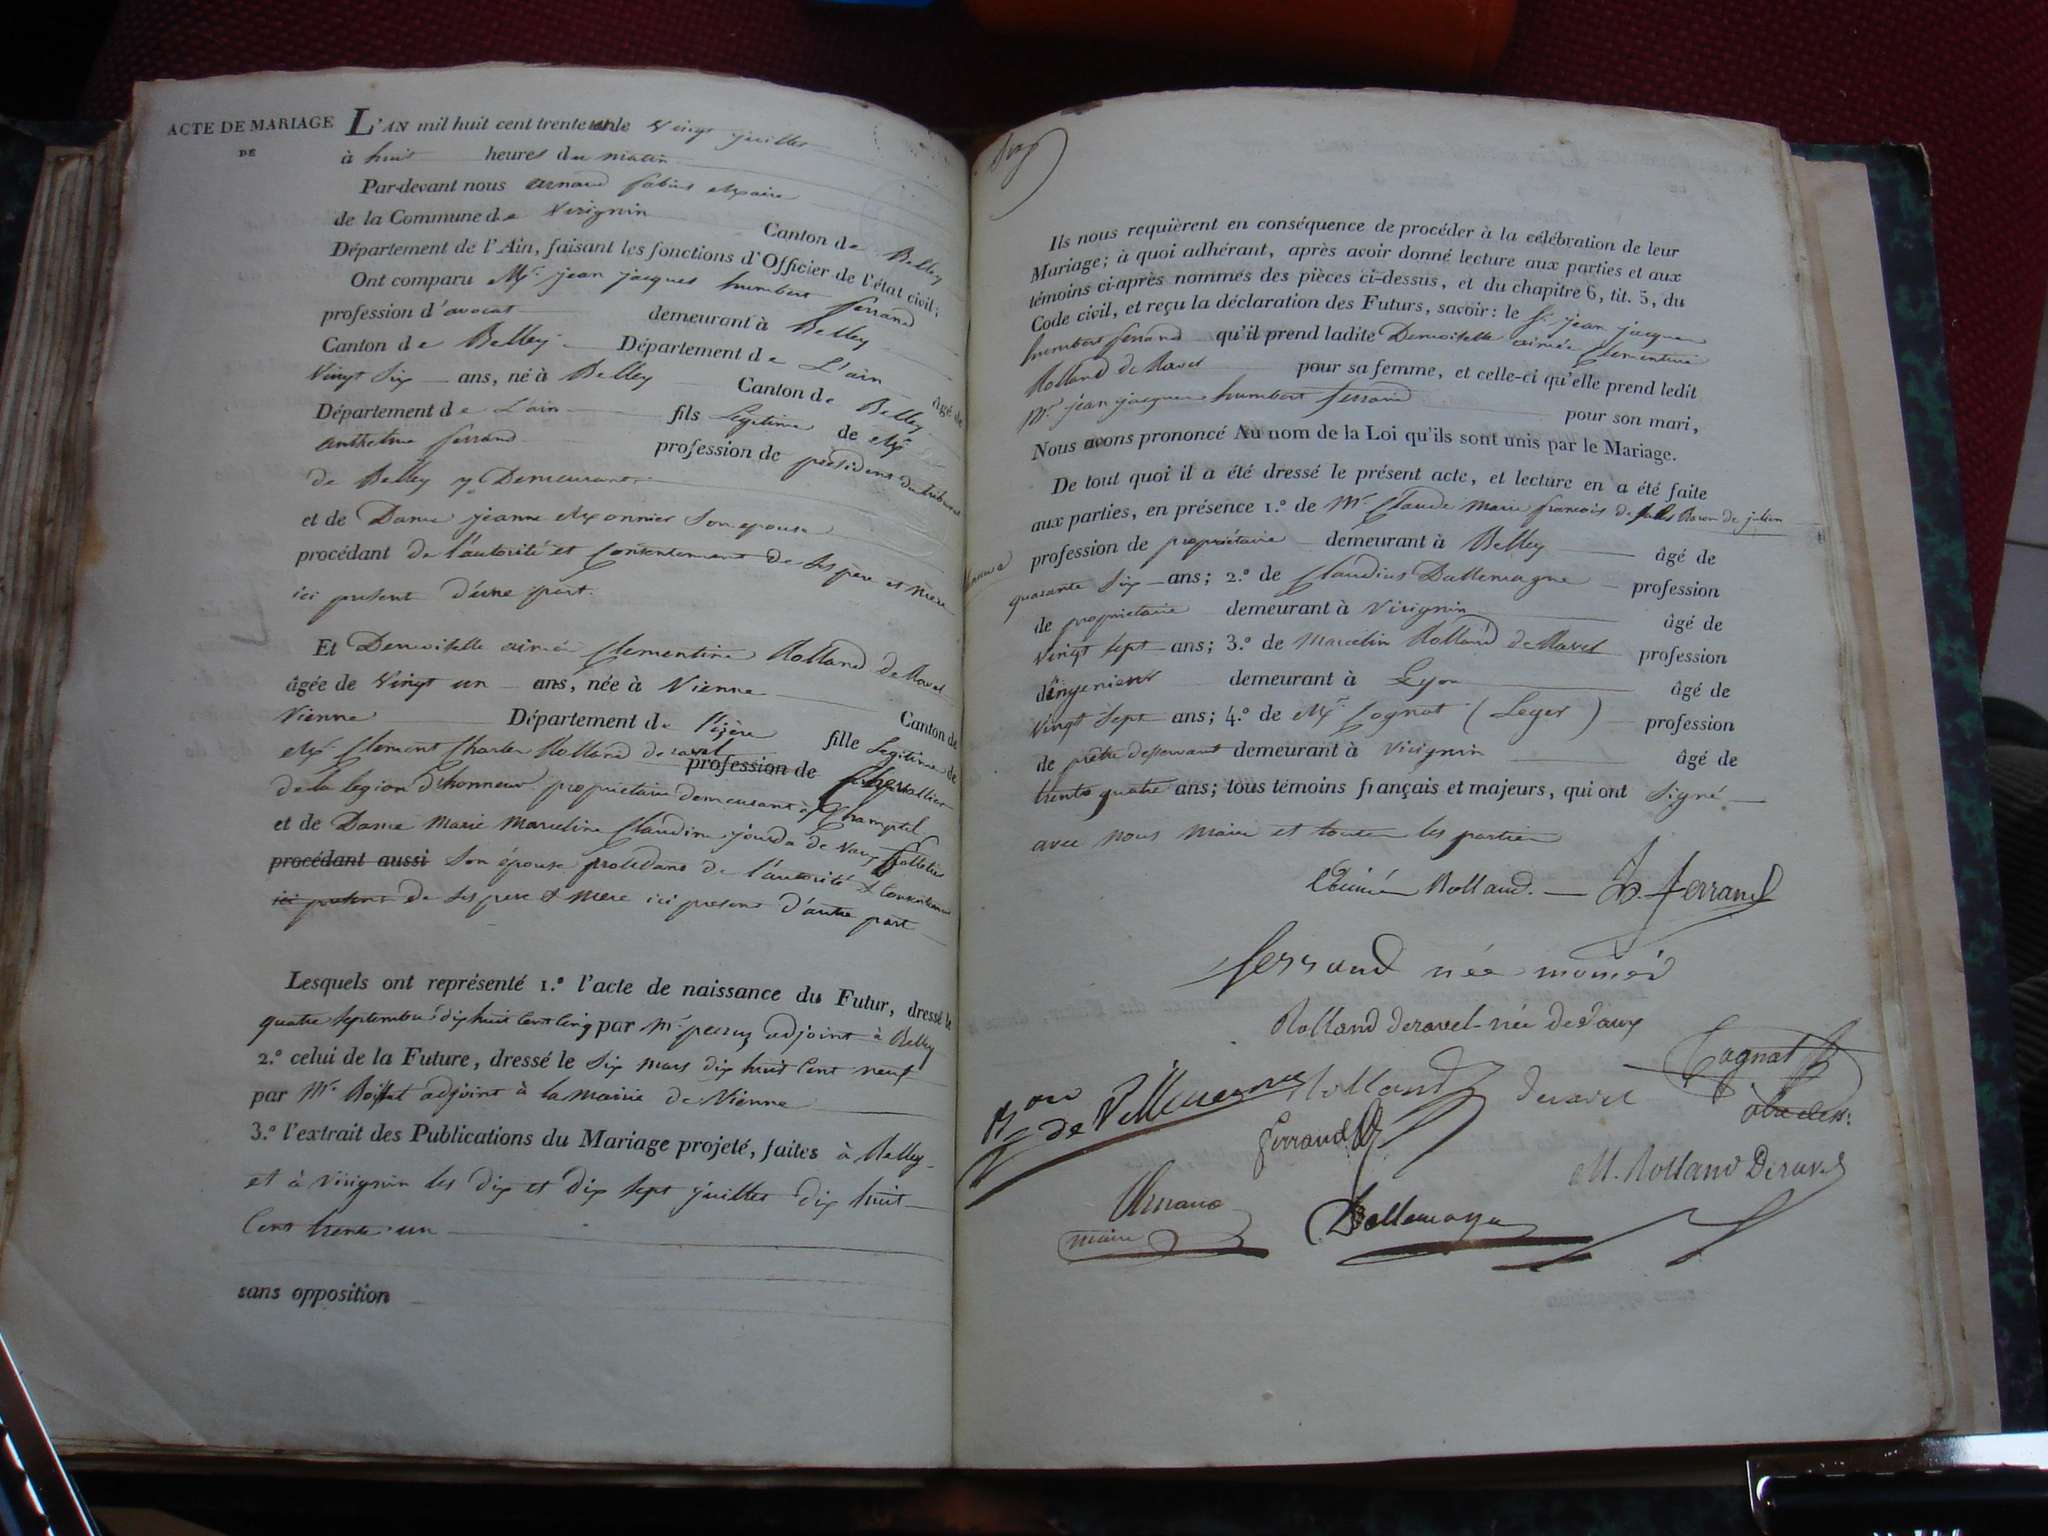 ACTE DE MARIAGE
DE
L'AN mil huit cent trente un le Vingt juillet
à huit heures du matin
Par-devant nous arnaud fabius Maire
de la Commune de Virignin Canton de Belley
Département de l'Ain, faisant les fonctions d'Officier de l'état civil;
Ont comparu Mr. jean jacques humbert ferrand
profession d'avocat demeurant à Belley
Canton de Belley Département de L'ain âgé de
Vingt Six ans, né à Belley Canton de Belley
Département de L'ain fils Legitime de Mr
anthelme ferrand profession de président du tribunal
de Belley y Demeurant
et de Dame jeanne Monnier Son epouse
procédant de l'autorité et Consentement de Ses père et mere
ici present d'une part.
Et Demoiselle aimée Clementine Rolland de Ravel
âgée de Vingt un ans, née à Vienne Canton de
Vienne Département de l'izère fille Legitime de
Mr Clement Charles Rolland de ravel profession de Chevallier
de la legion d'honneur proprietaire demeurant à
et de Dame Marie Marceline Claudine jourda de Vaux
procédant aussi Son épouse procedant de l'autorité & Consentement
ici present de Ses pere & mere ici present d'autre part
Lesquels ont représenté 1.° l'acte de naissance du Futur, dressé le
quatre Septembre dix huit Cent Cinq par Mr. adjoint à Belley
2.° celui de la Future, dressé le Six mars dix huit Cent neuf
par Mr. adjoint à la Mairie de Vienne
3.° l'extrait des Publications du Mariage projeté, faites à Belley
et à Virignin les dix et dix Sept juillet dix huit
Cent trente un
sans opposition
Ils nous requièrent en conséquence de procéder à la célébration de leur
Mariage; à quoi adhérant, après avoir donné lecture aux parties et aux
témoins ci-après nommés des pièces ci-dessus, et du chapitre 6, tit. 5, du
Code civil, et reçu la déclaration des Futurs, savoir: le Sr. jean jacques
humbert ferrand qu'il prend ladite Demoiselle aimée Clementine
Rolland de Ravel pour sa femme, et celle-ci qu'elle prend ledit
Mr. jean jacques humbert ferrand pour son mari,
Nous avons prononcé Au nom de la Loi qu'ils sont unis par le Mariage.
De tout quoi il a été dressé le présent acte, et lecture en a été faite
aux parties, en présence 1.° de Mr Claude Marie françois de Baron de
profession de propriétaire demeurant à Belley âgé de
quarante Six ans; 2.° de Claudius Dallemagne profession
de proprietaire demeurant à Virignin âgé de
vingt sept ans; 3.° de Marcelin Rolland de Ravel profession
d'ingenieur demeurant à Lyon âgé de
Vingt Sept ans; 4.° de Mr. Cognat (Leger) profession
de prêtre desservant demeurant à Virignin âgé de
trente quatre ans; tous témoins français et majeurs, qui ont Signé
avec nous Maire et toutes les parties
Aimée Rolland. h. ferrand
ferrand née monier
Rolland deravel née de Vaux
Cognat
Bon de Villeneuve Rolland deravel
Ferrand
M. Rolland Deravel
Arnaud
maire
Dallemagne